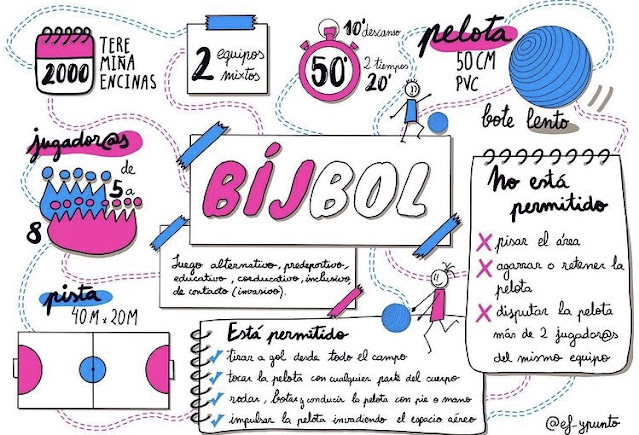 2000
TERE
MIÑA
ENCINAS
2 equipos
mixtos
50'
10' descanso
2 tiempos
20'
pelota
50 CM
PVC
bote lento
jugador@s
de
5 a
8
BÍJBOL
Juego alternativo, predeportivo,
educativo, coeducativo, inclusivo,
de contacto (invasivo).
pista
40 M x 20M
Está permitido
tirar a gol desde todo el campo
tocar la pelota con cualquier parte del cuerpo
rodar, botar y conducir la pelota con pie o mano
impulsar la pelota invadiendo el espacio aéreo
No está
permitido
pisar el área
agarrar o retener la
pelota
disputar la pelota
más de 2 jugador@s
del mismo equipo
@ef-ypunto